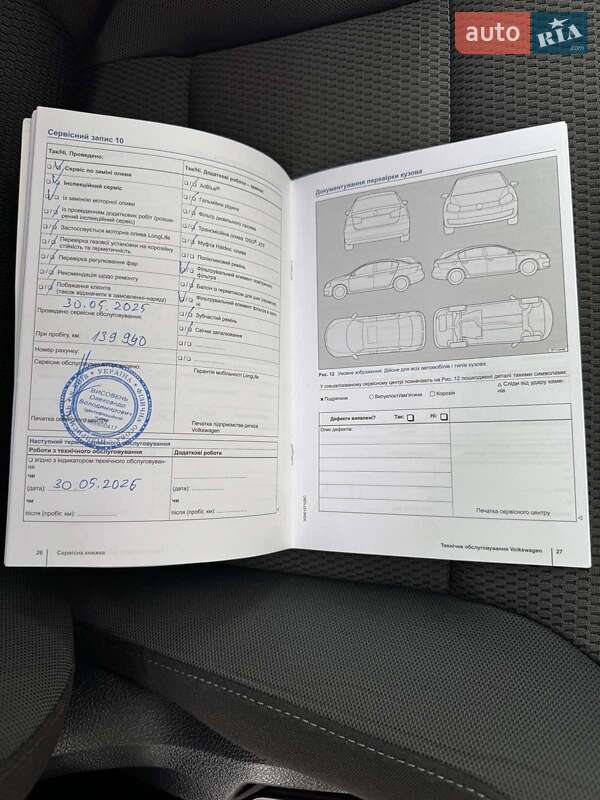 auto RIA.com
Сервісний запис 10
Так/Ні. Проведено:
Сервіс по заміні оливи
Інспекційний сервіс
Із заміною моторної оливи
Із проведенням додаткових робіт (розширений інспекційний сервіс)
Застосовується моторна олива LongLife
Перевірка газової установки на корозійну стійкість та герметичність.
Перевірка регулювання фар
Рекомендація щодо ремонту
Побажання клієнта
(також відзначити в замовленні-наряді)
30.05.2025
Проведено сервісне обслуговування:
При пробігу, км: 139 940
Номер рахунку:
Сервісне обслуговування
УКРАЇНА
ВИСОВЕНЬ
Олександр
Володимирович
Печатка сервісного центру
Так/Ні. Додаткові роботи
AdBlue®
Гальмівна рідина
Фільтр дизельного палива
Муфта Haldex, олива
Полікліновий ремінь
Фільтрувальний елемент повітряного фільтра
Фільтрувальний елемент фільтра в салоні
Зубчастий ремінь
Свічки запалювання
Гарантія мобільності LongLife
Печатка підприємства-дилера
Volkswagen
Наступний термін технічного обслуговування
Роботи з технічного обслуговування
згідно з індикатором технічного обслуговування
чи
(дата): 30.05.2026
чи
після (пробіг, км):
Додаткові роботи
(дата):
чи
після (пробіг, км):
26 Сервісна книжка
Документування перевірки кузова
Рис. 12 Умовне зображення. Дійсне для всіх автомобілів і типів кузова.
У спеціалізованому сервісному центрі позначають на Рис. 12 пошкоджені деталі такими символами:
Подряпини Випуклості/вм'ятини Корозія Сліди від удару каменів
Дефекти виявлені? Так: Ні:
Опис дефекта:
Печатка сервісного центру
Технічне обслуговування Volkswagen 27